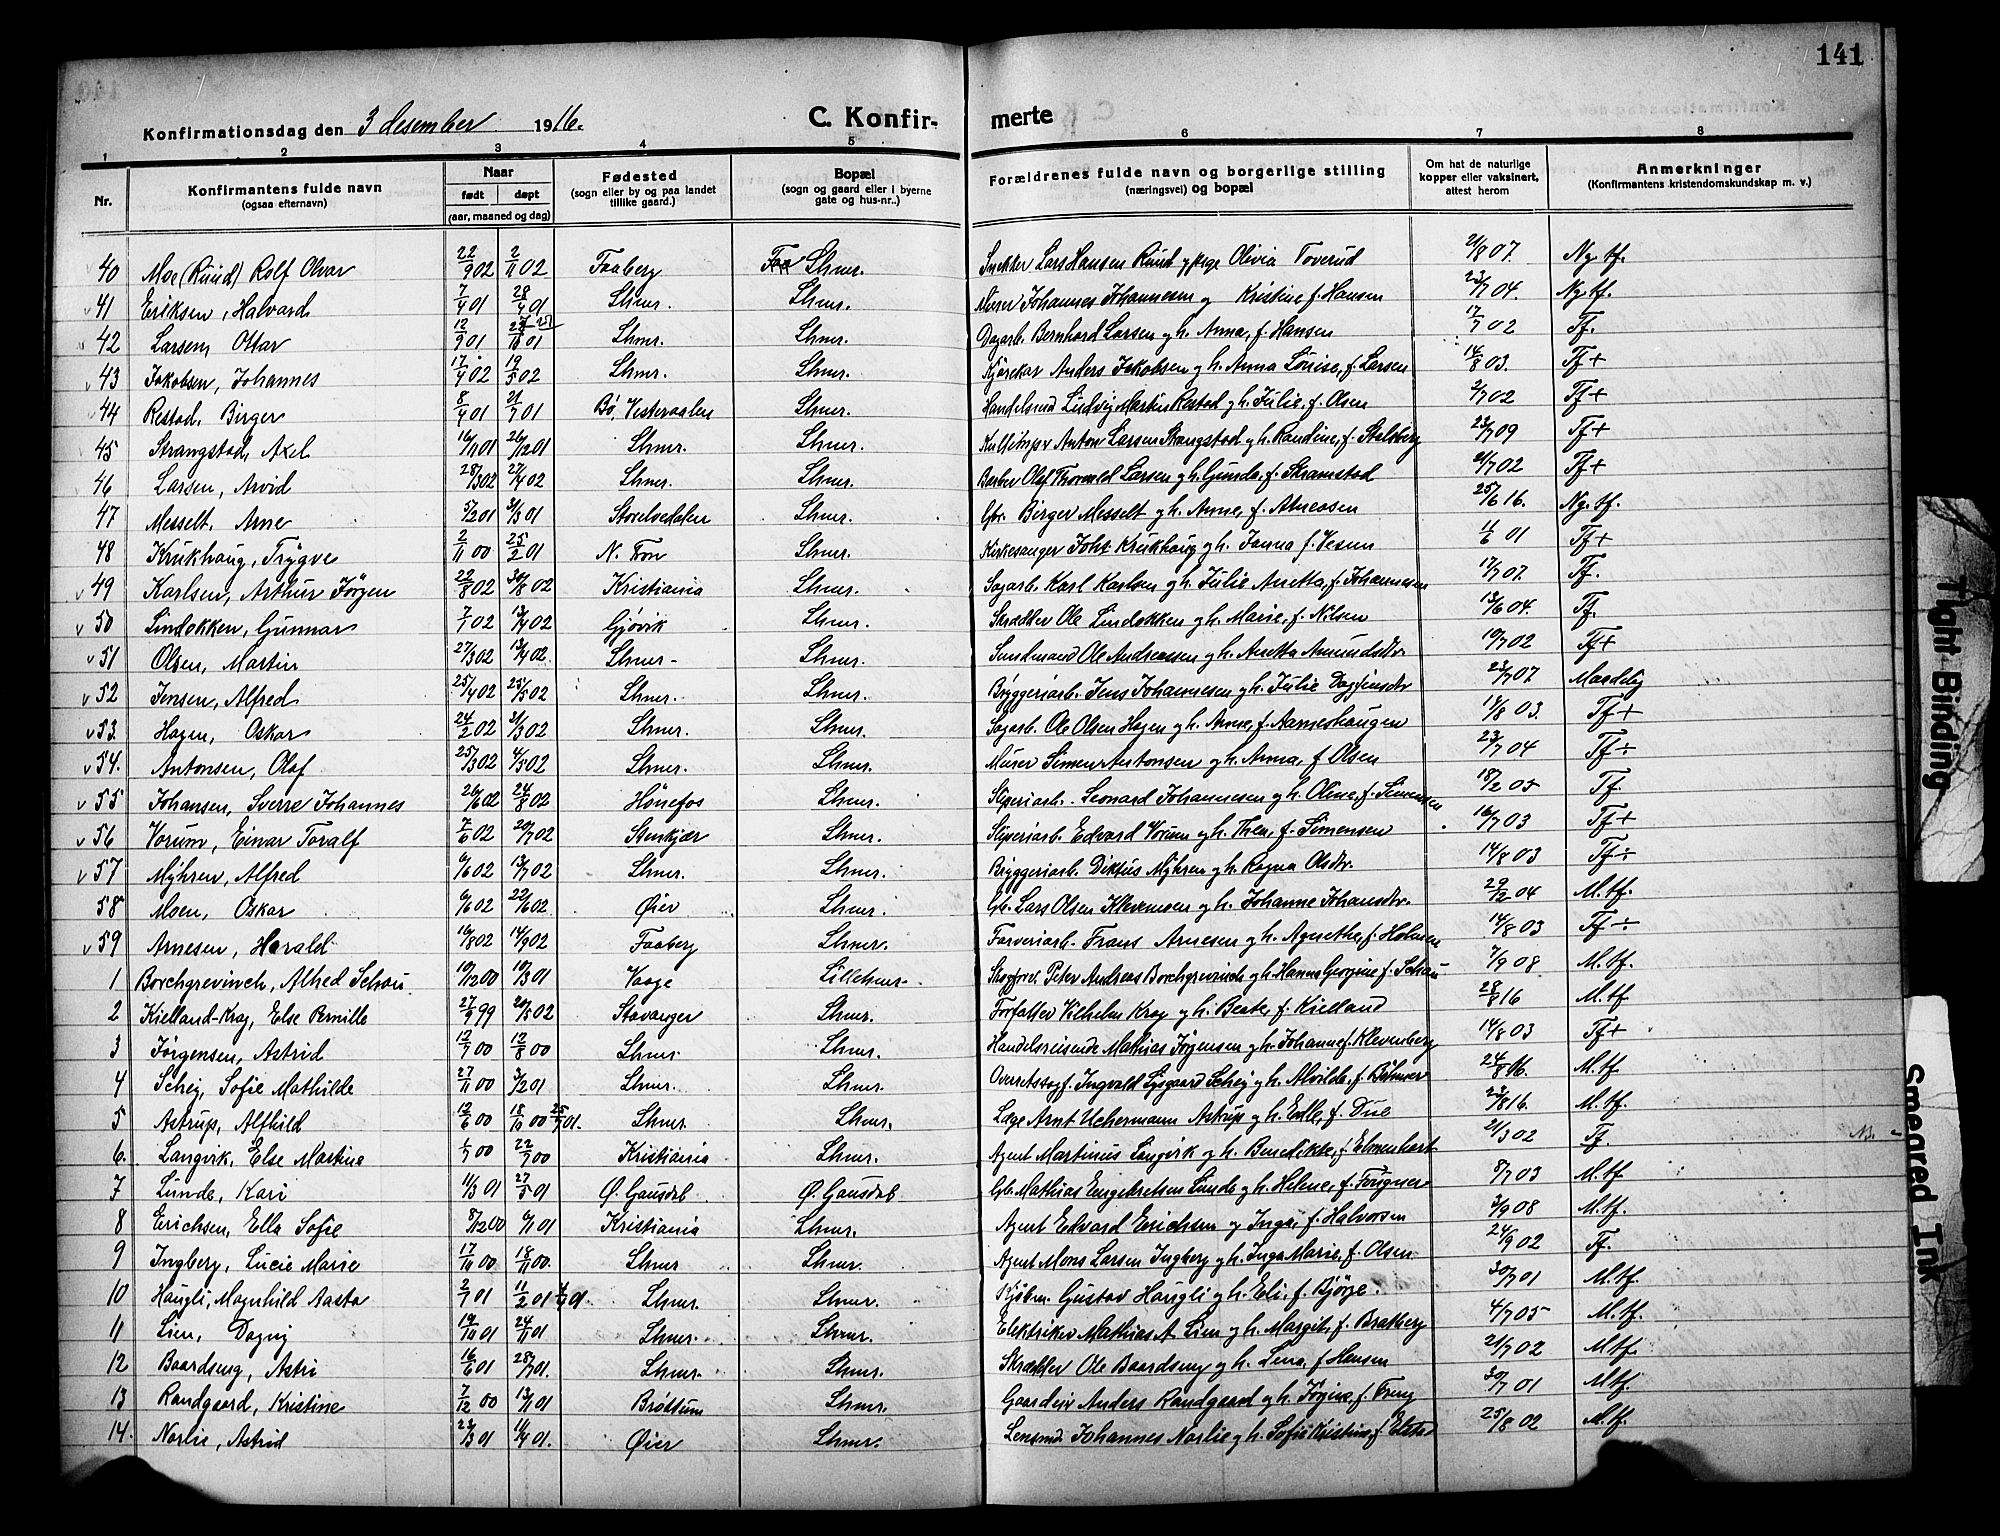 141
Konfirmationsdag den 3 desember 1916.
C. Konfirmerte
1 2 3 4 5 6 7 8
Nr. Konfirmantens fulde navn (ogsaa efternavn) Naar født døpt (aar, maaned og dag) Fødested (sogn eller by og paa landet tillike gaard.) Bopæl (sogn og gaard eller i byerne gate og hus-nr..) Forældrenes fulde navn og borgerlige stilling (næringsvei) og bopæl Om hat de naturlige kopper eller vaksinert, attest herom Anmerkninger (Konfirmantens kristendomskundskap m. v.)
40 Moe (Ruud) Rolf Olvar 22/9 02 2/11 02 Faaberg Lhmr. Snekker Lars Hansen Ruud Olivia Toverud 21/8 07. Ng. tf.
41 Eriksen, Halvard 7/4 01 28/4 01 Lhmr. Lhmr. Johannes Johannesen og Kristine f. Hansen 23/7 04. Ng tf.
42 Larsen, Ottar 12/9 01 Lhmr. Lhmr. Dagarb. Bernhard Larsen og h. Anna, f. Hansen 17/7 02 Tf.
43 Jakobsen, Johannes 17/4 02 19/5 02 Lhmr. Lhmr. Kjørekar Anders Jakobsen og h. Anna Louise, f. Larsen 14/8 03. Tf+
44 Restad, Birger 8/4 01 21/7 01 Bø, Vesteraalen Lhmr. Handelsmd Ludvig Martin Restad og h. Julie, f. Olsen 2/7 02 Tf+
45 Strangstad, Axel 16/11 01 26/12 01 Lhmr. Lhmr. Anton Larsen Strangstad og h. Randine, f. Stalsberg 23/7 09 Tf+
46 Larsen, Arvid 28/3 02 27/4 02 Lhmr. Lhmr. Barber Olaf Thorvald Larsen og h. Gunda, f. Skramstad 21/7 02 Tf+
47 Messelt, Arne 5/2 01 31/3 01 Storelvedalen Lhmr. Birger Messelt og h. Anne, f. 25/6 16. Ng. tf.
48 Krukhaug, Trygve 2/11 00 25/2 01 N. Fron Lhmr. Kirkesanger Joh. Krukhaug og h. Janna f. 1/6 01 Tf+
49 Karlsen, Arthur Jørgen 22/8 02 30/8 02 Kristiania Lhmr. Sagarb. Karl Karlsen og h. Julie Anetta, f. Johannesen 17/7 07. Tf.
50 Lindokken, Gunnar 7/1 02 13/4 02 Gjøvik Lhmr. Skrædder Ole Lindokken og h. Marie, f. Nilsen 13/6 04. Tf.
51 Olsen, Martin 27/3 02 13/4 02. Lhmr. Lhmr. Ole Andreassen og h. Anetta Amundsdtr 10/7 02 Tf+
52 Jensen, Alfred 25/4 02 25/5 02 Lhmr. Lhmr. Bryggeriarb. Jens Johannesen og h. Julie Dagfinsdtr 23/7 07. Maadelig
53. Hagen, Oskar 24/2 02 31/3 02 Lhmr. Lhmr. Sagarb. Ole Olsen Hagen og h. Anne, f. Aarneshaugen 14/8 03. Tf+
54. Antonsen, Olaf 25/3 02 4/5 02 Lhmr. Lhmr. Murer Simen Antonsen og h. Anna, f Olsen 23/7 04 Tf÷
55 Johansen, Sverre Johannes 26/6 02 24/8 02 Hønefos Lhmr. Sliperiarb. Leonard Johannesen og h. Oline, f. Simensen 18/2 05 Tf.
56 Vorum, Einar Toralf 7/6 02 20/7 02 Stenkjær Lhmr. Sliperiarb. Edvard Vorum og h. Thea, f. Simensen 16/7 03 Tf+
57 Myhren, Alfred 6/6 02 13/7 02 Lhmr. Lhmr. Bryggeriarb. Diktus Myhren og h. Ragna Olsdtr. 14/8 03 Tf÷
58 Moen, Oskar 6/6 02 22/6 02 Øier Lhmr. Gb. Lars Olsen og h. Johanne Johansdtr. 29/2 04 M. tf.
59 Arnesen, Harald 10/8 02 14/9 02 Faaberg Lhmr. Farveriarb. Frans Arnesen og h. Agnethe, f. Holmen 14/8 03 Tf÷
1 Borchgrevinch, Alfred Schou 10/12 00 10/3 01 Vaage Lillehmr. Skogforv. Peter Andreas Borchgrevinch og h. Hanna Georgine f. Schou 7/9 08 M. tf.
2 Kielland-Krag, Else Pernille 27/9 99 20/8 02 Stavanger Lhmr. Forfatter Vilhelm Krag og h. Beate, f. Kielland 28/8 16 M. tf
3 Jørgensen, Astrid 12/7 00 12/8 00 Lhmr. Lhmr. Handelsreisende Mathias Jørgensen og h. Johanne f. Klevenberg 14/8 03 Tf+
4 Scheij, Sofie Mathilde 27/11 00 3/2 01 Lhmr. Lhmr. Overretssagf. Ingvald Sysgaard Scheij og h. Alvilde, f. Böhmer 24/8 16. M. tf.
5 Astrup, Alfhild 12/6 00 18/10 00 Lhmr. Lhmr. Læge Arnt Uchermann Astrup og h. Edle, f. Due 23/8 16. M. tf.
6. Langvik, Else Martine 1/7 00 22/7 00 Kristiania Lhmr. Agent Martinus Langvik og h. Benedikte, f. Elmenhorst 21/3 02 Tf.
7 Lunde, Kari 11/3 01 27/5 01 Ø. Gausdal Ø. Gausdal Gb. Mathias Engebretsen Lunde og h. Helene, f. Fougner 8/7 03 M. tf.
8 Erichsen, Ella Sofie 8/12 00 6/1 01 Kristiania Lhmr. Agent Edvard Erichsen og Inga, f. Halvorsen 3/9 08 M. tf.
9 Ingberg, Lucie Marie 17/10 00 18/11 00. Lhmr Lhmr. Agent Mons Larsen Ingberg og h. Inga Marie, f. Olsen 24/9 02 Tf.
10 Haugli, Magnhild Aasta 2/1 01 11/2 01 Lhmr. Lhmr. Kjøbm. Gustav Haugli og h. Eli, f. Bjørge. 30/7 01 M. tf.
11 Lien, Dagny 19/10 01 24/11 01 Lhmr. Lhmr. Elektriker Mathias A. Lien og h. Margit, f. Bratberg 4/7 05 M. tf.
12 Baardseng, Astri 16/6 01 28/7 01. Lhmr. Lhmr. Skrædder Ole Baardseng og h. Lina, f. Hansen 21/7 02 M. tf.
13 Randgaard, Kristine 7/12 00 13/1 01 Brøttum Lhmr. Anders Randgaard og h. Jørgine, f. Freng 30/7 01 M. tf.
14. Norlie, Astrid 23/3 01 14/4 01. Øier Lhmr. Lensmd Johannes Norlie og h. Sofie Kristine, f. Elstad 25/8 02 M. tf.
Tight Binding
Smeared Ink